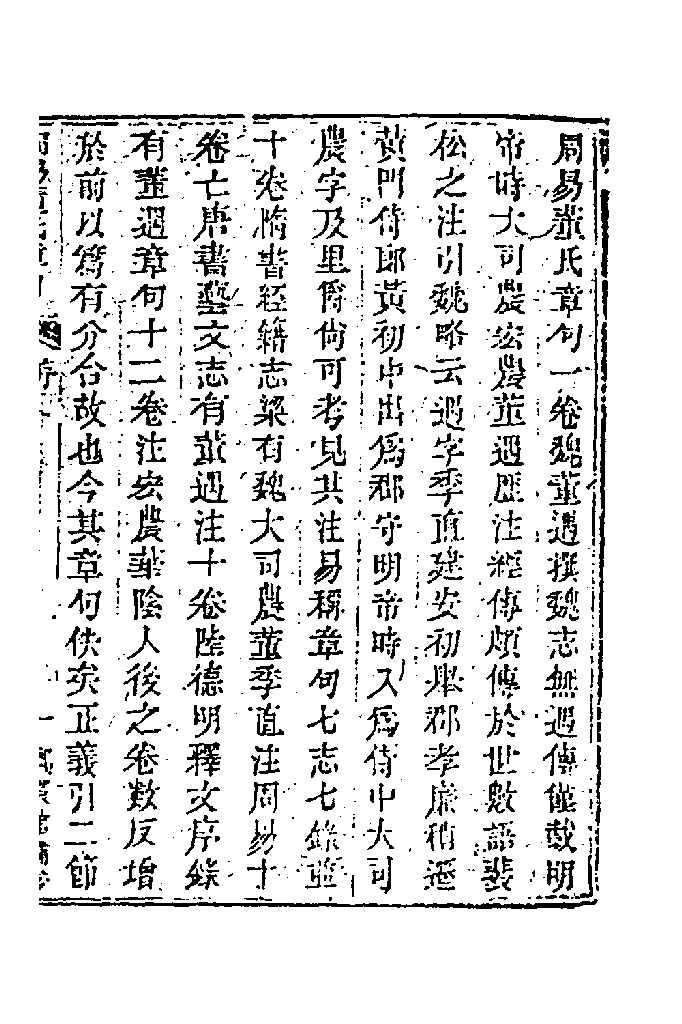 周易董氏章句一卷魏董遇撰魏志無遇傳僅載明
帝時大司農宏農董遇歷注經傳頗傳於世數語裴
松之注引魏略云遇字季直建安初舉郡孝廉稍遷
黃門侍郎黃初中出為郡守明帝時入為侍中大司
農字及里爵尙可考見其注易稱章句七志七錄並
十卷隋書經籍志梁有魏大司農董季直注周易十
卷亡唐書藝文志有董遇注十卷陸德明釋文序錄
有董遇章句十二卷注宏農華陰人後之卷數反增
於前以為有分合故也今其章句佚矣正義引二節
周易董氏章句 序 一